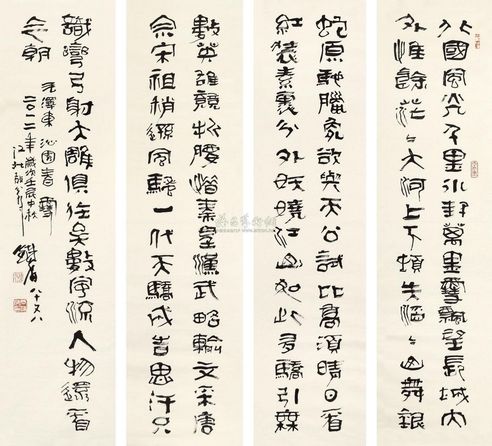 北國風光千里冰封萬里雪飄望長城內
外惟餘茫〻大河上下頓失滔〻山舞銀
蛇原馳臘象欲與天公試比高須晴日看
紅裝素裹分外妖嬈江山如此多驕引無
數英雄競折腰惜秦皇漢武略輸文采唐
宗宋祖稍遜風騷一代天驕成吉思汗只
識彎弓射大雕俱往矣數風流人物還看
今朝
毛澤東沁園春雪
二〇一二年歲次壬辰中秋
八十又八